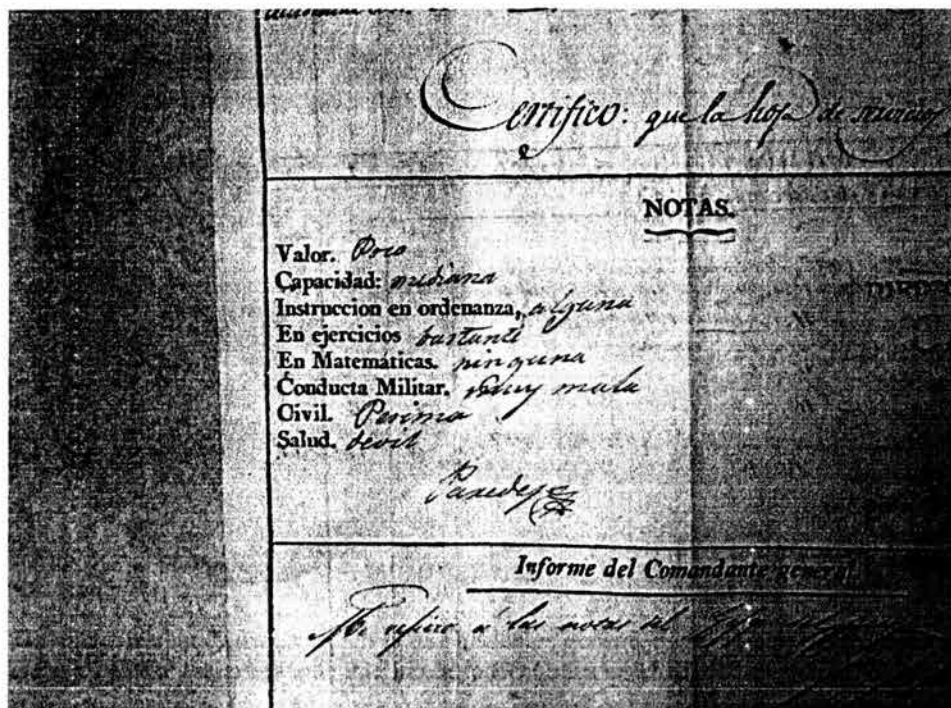 Certifico: que la hoja de servicios
NOTAS.
Valor. Poco
Capacidad: mediana
Instruccion en ordenanza, alguna
En ejercicios bastante
En Matemáticas. ninguna
Conducta Militar. Muy mala
Civil. Pesima
Salud. devil
Paredes
Informe del Comandante general.
Me refiero á las notas del Gefe